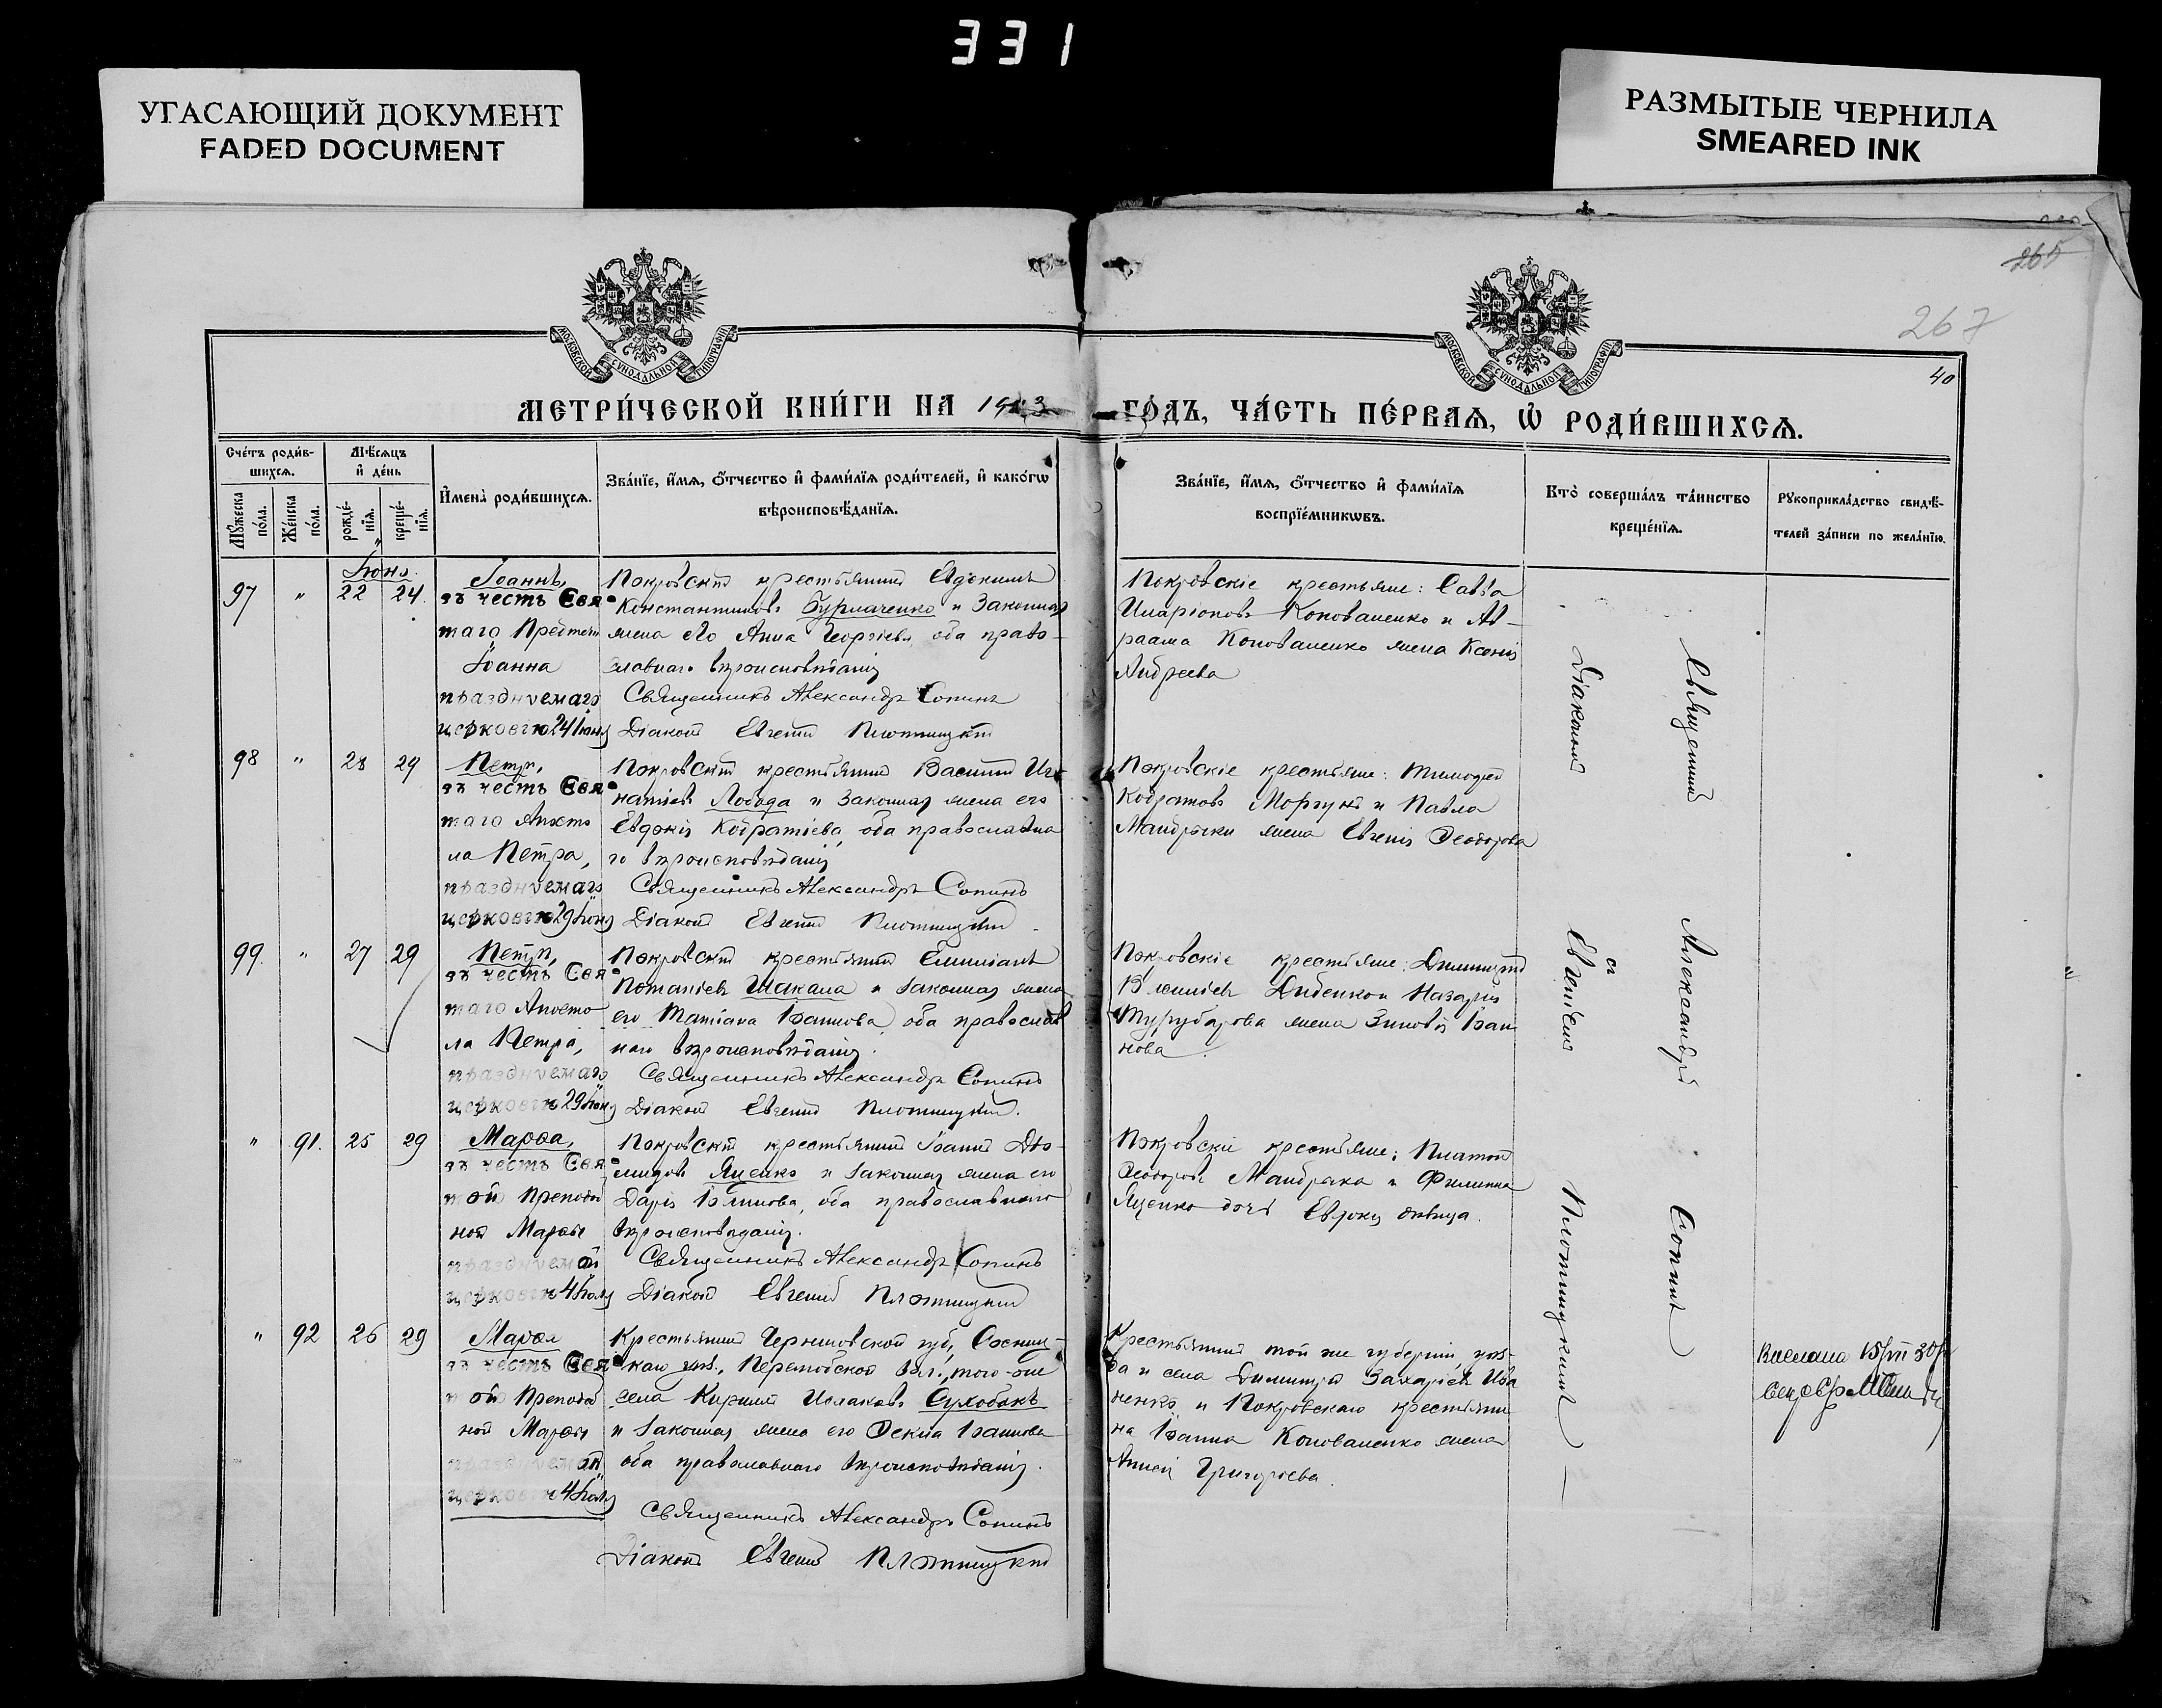 331
УГАСАЮЩИЙ ДОКУМЕНТ
FADED DOCUMENT
РАЗМЫТЫЕ ЧЕРНИЛА
SMEARED INK
265
267
40
МОСКОВСКОЙ СѴНОДАЛЬНОЙ ТИПОГРАФІИ
МОСКОВСКОЙ СѴНОДАЛЬНОЙ ТИПОГРАФІИ
МЕТРИ́ЧЕСКОЙ КНИ́ГИ НА 1913 ГО́ДЪ, ЧА́СТЬ ПЕ́РВАѦ, Ѡ҆ РОДИ́ВШИХСѦ.
Сче́тъ роди́вшихсѧ.
Мꙋ́жеска по́ла.
Же́нска по́ла.
Мѣ́сѧцъ и҆ де́нь
рожде́нїѧ.
креще́нїѧ.
И҆мена̀ роди́вшихсѧ.
Зва́нїе, и҆́мѧ, ѻ҆́тчество и҆ фами́лїѧ роди́телей, и҆ како́гѡ
вѣроисповѣ́данїѧ.
Зва́нїе, и҆́мѧ, ѻ҆́тчество и҆ фами́лїѧ
воспрїе́мникѡвъ.
Кто̀ соверша́лъ та́инство
креще́нїѧ.
Рꙋкоприкла́дство свидѣ́-
телей за́писи по жела́нїю.
Іюнь
97 " 22 24
Іоаннъ,
въ честь Свя
таго Предтечи
Іоанна
празднуемаго
церковію 24 Іюня
Покровскій крестьянинъ Евдокимъ
Константиновъ Бурлаченко и законная
жена его Анна Георгіева, оба право-
славнаго вѣроисповѣданія
Священникъ Александръ Сопинъ
Діаконъ Евгеній Плотницкій
Покровскіе крестьяне: Савва
Иларіоновъ Коноваленко и Ав-
раама Коноваленко жена Ксенія
Андреева
98 " 28 29
Петръ,
въ честь Свя
таго Апосто
ла Петра,
празднуемаго
церковію 29 Іюня
Покровскій крестьянинъ Василій Иг-
натіевъ Лобода и законная жена его
Евдокія Кодратіева, оба православна
го вѣроисповѣданія
Священникъ Александръ Сопинъ
Діаконъ Евгеній Плотницкій
Покровскіе крестьяне: Тимофей
Кодратовъ Моргунъ и Павла
Мандрыки жена Евгенія Ѳеодорова
99 " 27 29
Петръ,
въ честь Свя
таго Апосто
ла Петра,
празднуемаго
церковію 29 Іюня
Покровскій крестьянинъ Емиліанъ
Потапіевъ Шакала и законная жена
его Татіана Іоаннова, оба православ
наго вѣроисповѣданія.
Священникъ Александръ Сопинъ
Діаконъ Евгеній Плотницкій.
Покровскіе крестьяне: Димитрій
жена Зиновія Іоан
нова.
" 91. 25 29
Марѳа,
въ честь Свя
той Преподоб
ной Марѳы
празднуемой
церковію 4 Іюля
Покровскій крестьянинъ Іоаннъ Діо-
мидовъ Яценко и законная жена его
Дарія, оба православнаго
вѣроисповѣданія.
Священникъ Александръ Сопинъ
Діаконъ Евгеній Плотницкій
Покровскіе крестьяне: Платонъ
Ѳеодоровъ Мандрыка и Филиппа
Яценко дочь дѣвица.
" 92 26 29
Марѳа
въ честь Свя
той Преподоб
ной Марѳы
празднуемой
церковію 4 Іюля
Крестьянинъ Черниговской губ, Сосниц-
каго уѣз., вол., того-же
села Кириллъ Сухобокъ
и законная жена его Іоаннова
оба православнаго вѣроисповѣданія.
Священникъ Александръ Сопинъ
Діаконъ Евгеній Плотницкій
Крестьянинъ той же губерніи уѣз-
да и села Димитрій Захаріевъ Ива
ненко и Покровскаго крестьяни
на Іоанна Коноваленко жена
Анна Григоріева.
Священникъ Александръ Сопинъ
съ
Діакономъ Евгеніемъ Плотницкимъ